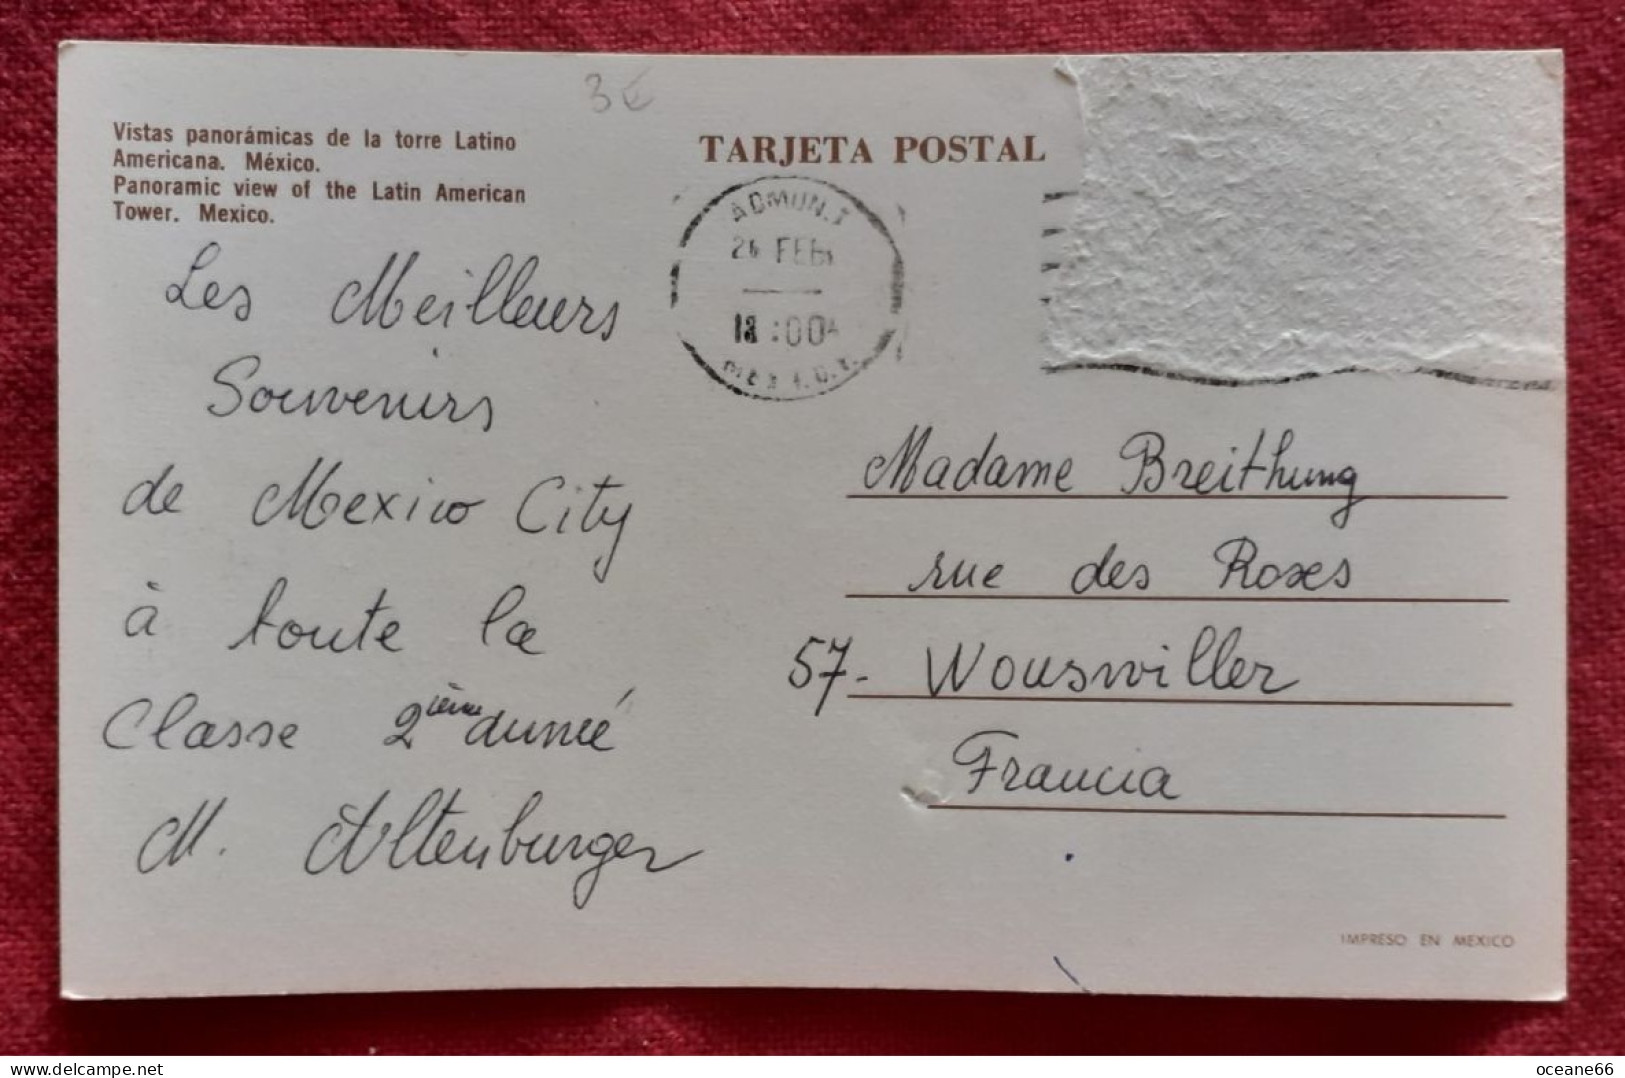 3€
Vistas panorámicas de la torre Latino
Americana. México.
Panoramic view of the Latin American
Tower. Mexico.
TARJETA POSTAL
ADMON. 1
FEB
:00
Les Meilleurs
Souvenirs
de Mexico City
à toute la
Classe 2ième année
M. Altenburger
Madame Breithung
rue des Roses
57- Wouswiller
Francia
IMPRESO EN MEXICO
www.delcampe.net
oceane66